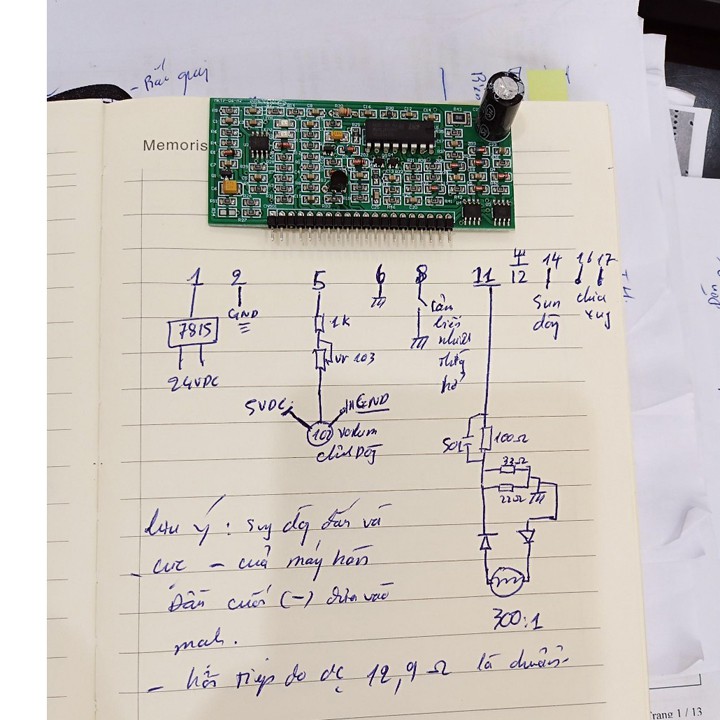 - Bắt quai
Memoris
1 2 5 6 8 11 4/12 14 16 17
GND
7815
24VDC
1K
vr 103
5VDC
GND
102 volum
chỉnh dòng
cảm
biến
nhiệt
thường
hở
sun
dòng
chia
xung
501
100Ω
33Ω
22Ω
300:1
Lưu ý: sug dòng đấu và
- cực - của máy hàn
Dần cuối (-) đưa vào
mạch.
- hồi tiếp đo đc 12,9 Ω là chuẩn.
Trang 1 / 13